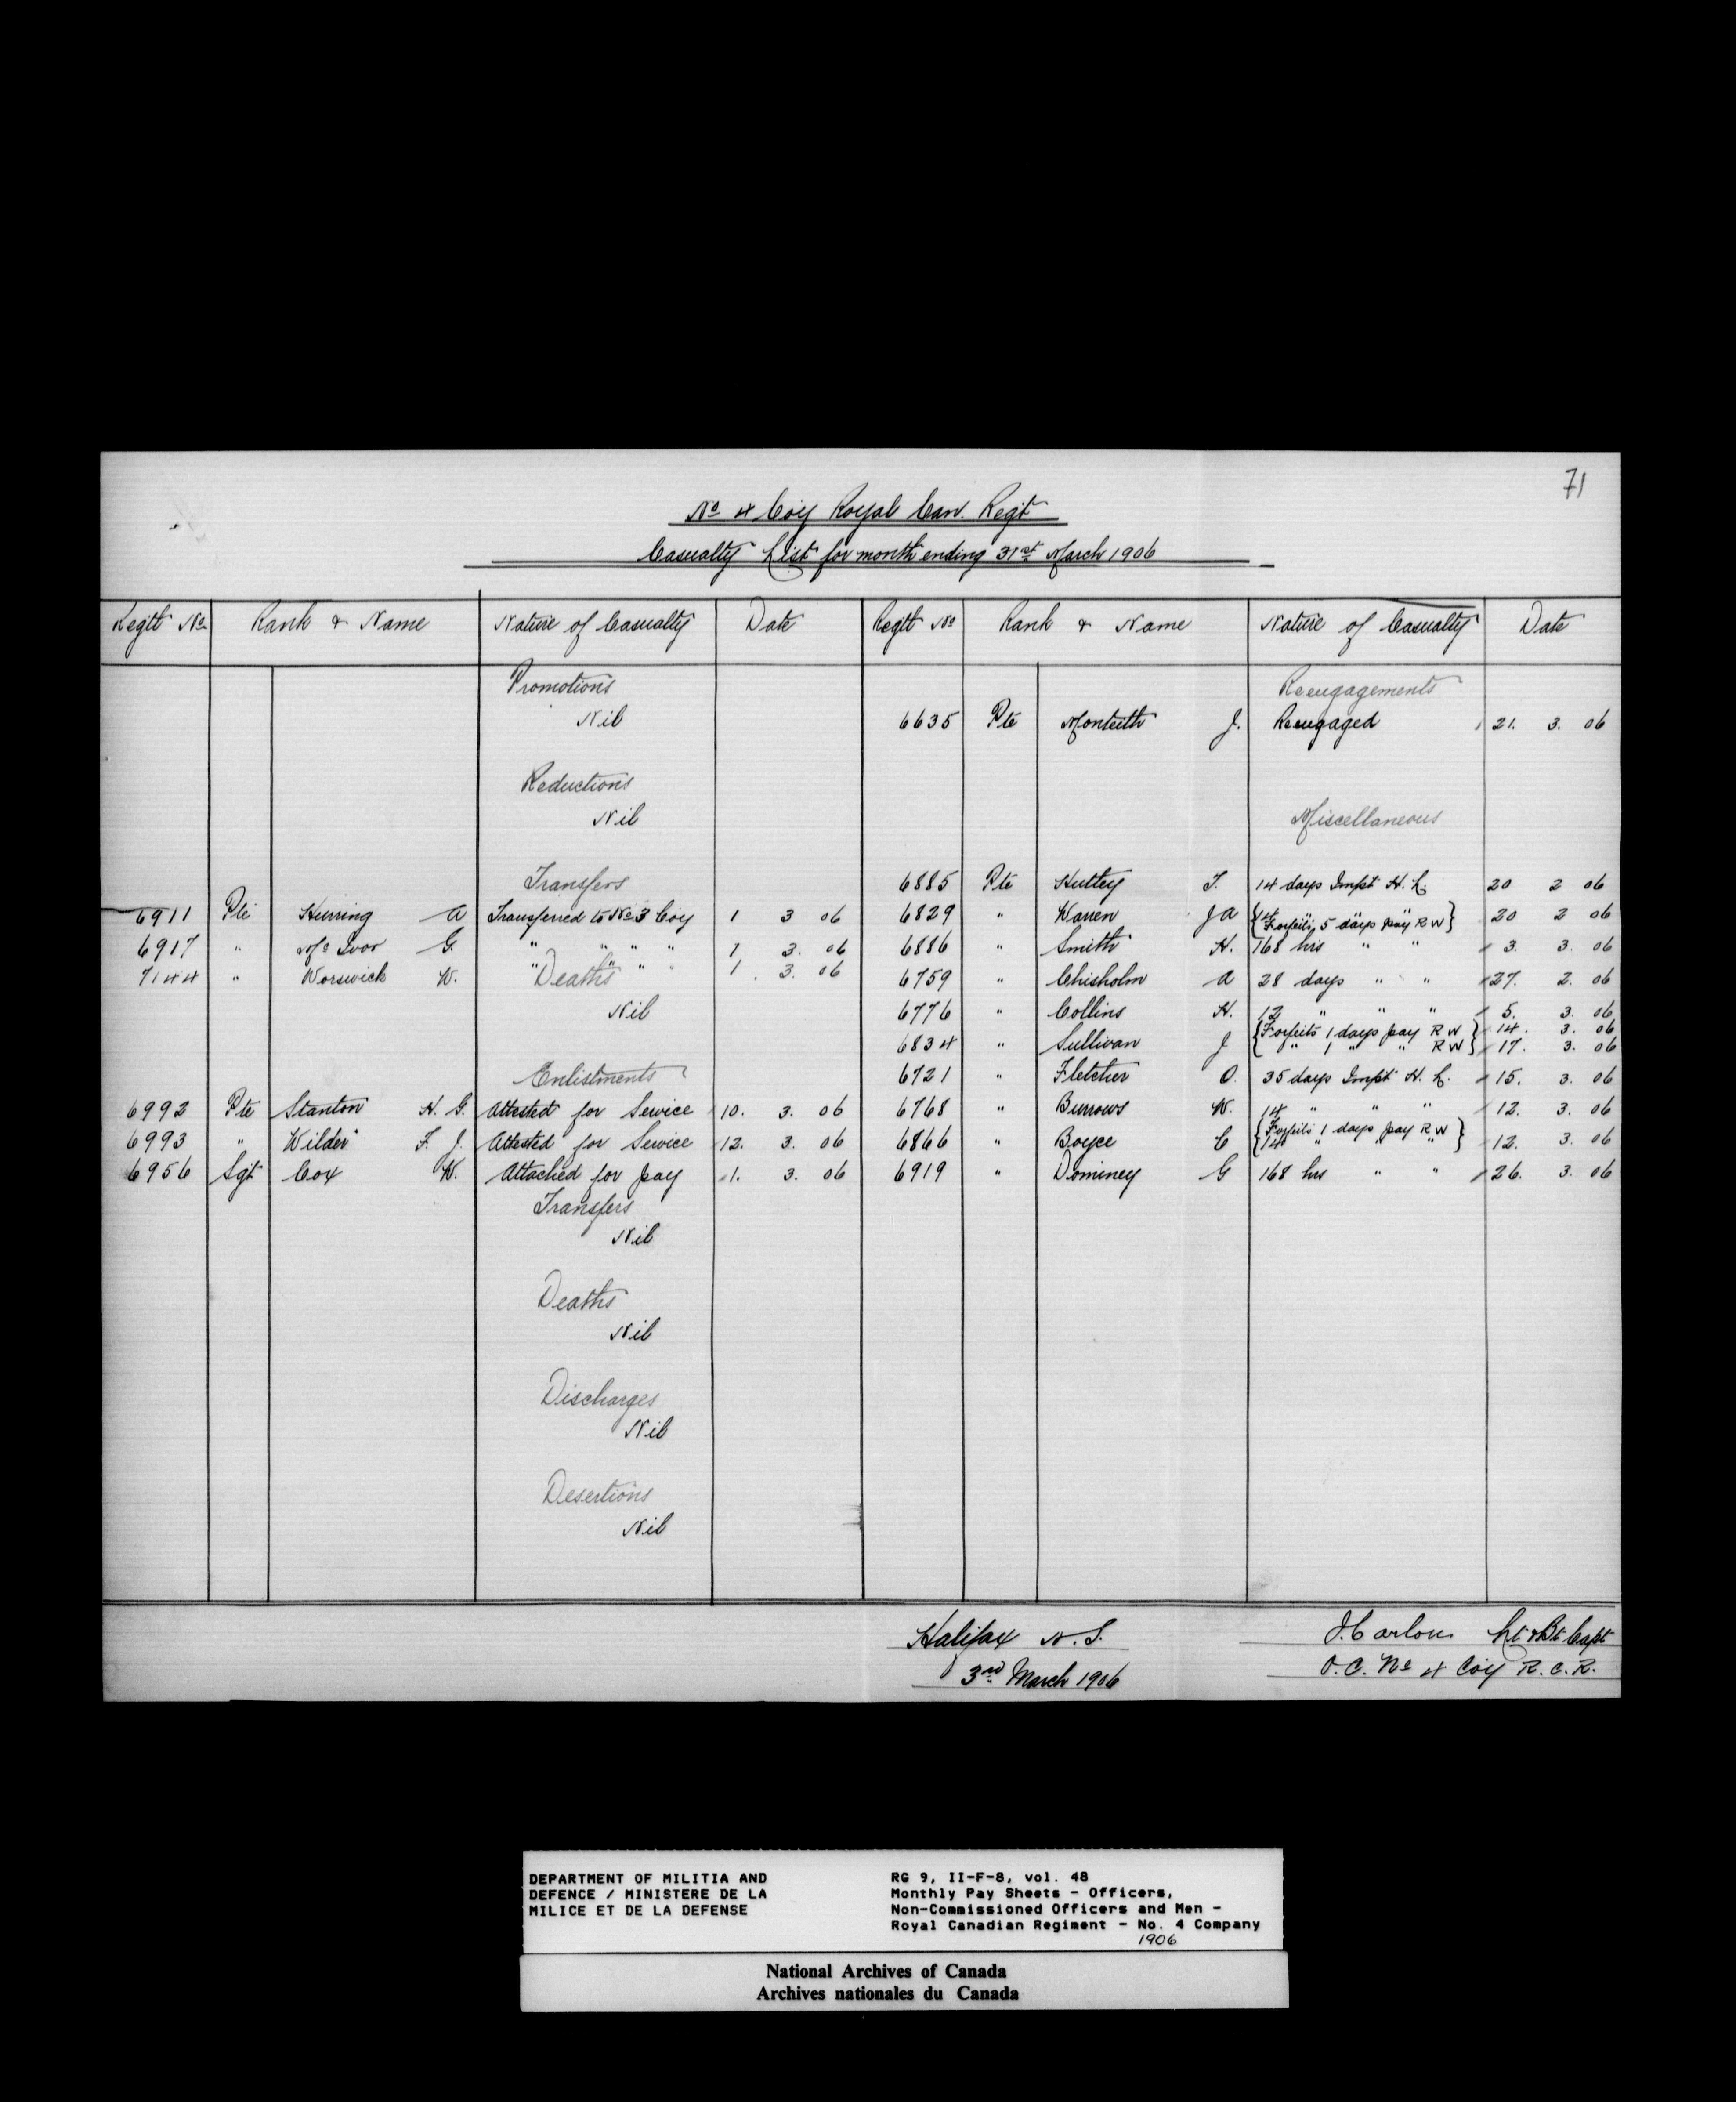 71
No 4 Coy Royal Can. Regt
Casualty List for month ending 31st March 1906
Regtl No Rank & Name Nature of Casualty Date Regtl No Rank & Name Nature of Casualty Date
Promotions
Nil
Reductions
Nil
Transfers
6911 Pte Herring A Transferred to No 3 Coy 1 3 06
6917 " McIvor G. " " " " 1 3. 06
7144 " Worswick W. " " " " 1. 3. 06
Deaths
Nil
Enlistments
6992 Pte Stanton H. G. Attested for Service 10. 3. 06
6993 " Wilder F. J. Attested for Service 12. 3. 06
6956 Sgt Cox W. Attached for pay 1. 3. 06
Transfers
Nil
Deaths
Nil
Discharges
Nil
Desertions
Nil
Reengagements
6635 Pte Monteith J. Reengaged 21. 3. 06
Miscellaneous
6885 Pte Hutley T. 14 days Impt H. L. 20 2 06
6829 " Warren J A { 14 " " "
Forfeits 5 days pay R W } 20 2 06
6886 " Smith H. 168 hrs " " 3. 3. 06
6759 " Chisholm A 28 days " " 27. 2. 06
6776 " Collins H. 12 " " " 5. 3. 06
6834 " Sullivan J { Forfeits 1 days pay R W } 14. 3. 06
" 1 " " R W 17. 3. 06
6721 " Fletcher O. 35 days Impt H. L. 15. 3. 06
6768 " Burrows W. 14 " " " 12. 3. 06
6866 " Boyce C { Forfeits 1 days pay R W
14 " " " } 12. 3. 06
6919 " Dominey G 168 hrs " " 26. 3. 06
Halifax N. S.
3rd March 1906
J. Carlon Lt & Bt Capt
O. C. No 4 Coy R. C. R.
DEPARTMENT OF MILITIA AND
DEFENCE / MINISTERE DE LA
MILICE ET DE LA DEFENSE
RG 9, II-F-8, vol. 48
Monthly Pay Sheets - Officers,
Non-Commissioned Officers and Men -
Royal Canadian Regiment - No. 4 Company
1906
National Archives of Canada
Archives nationales du Canada